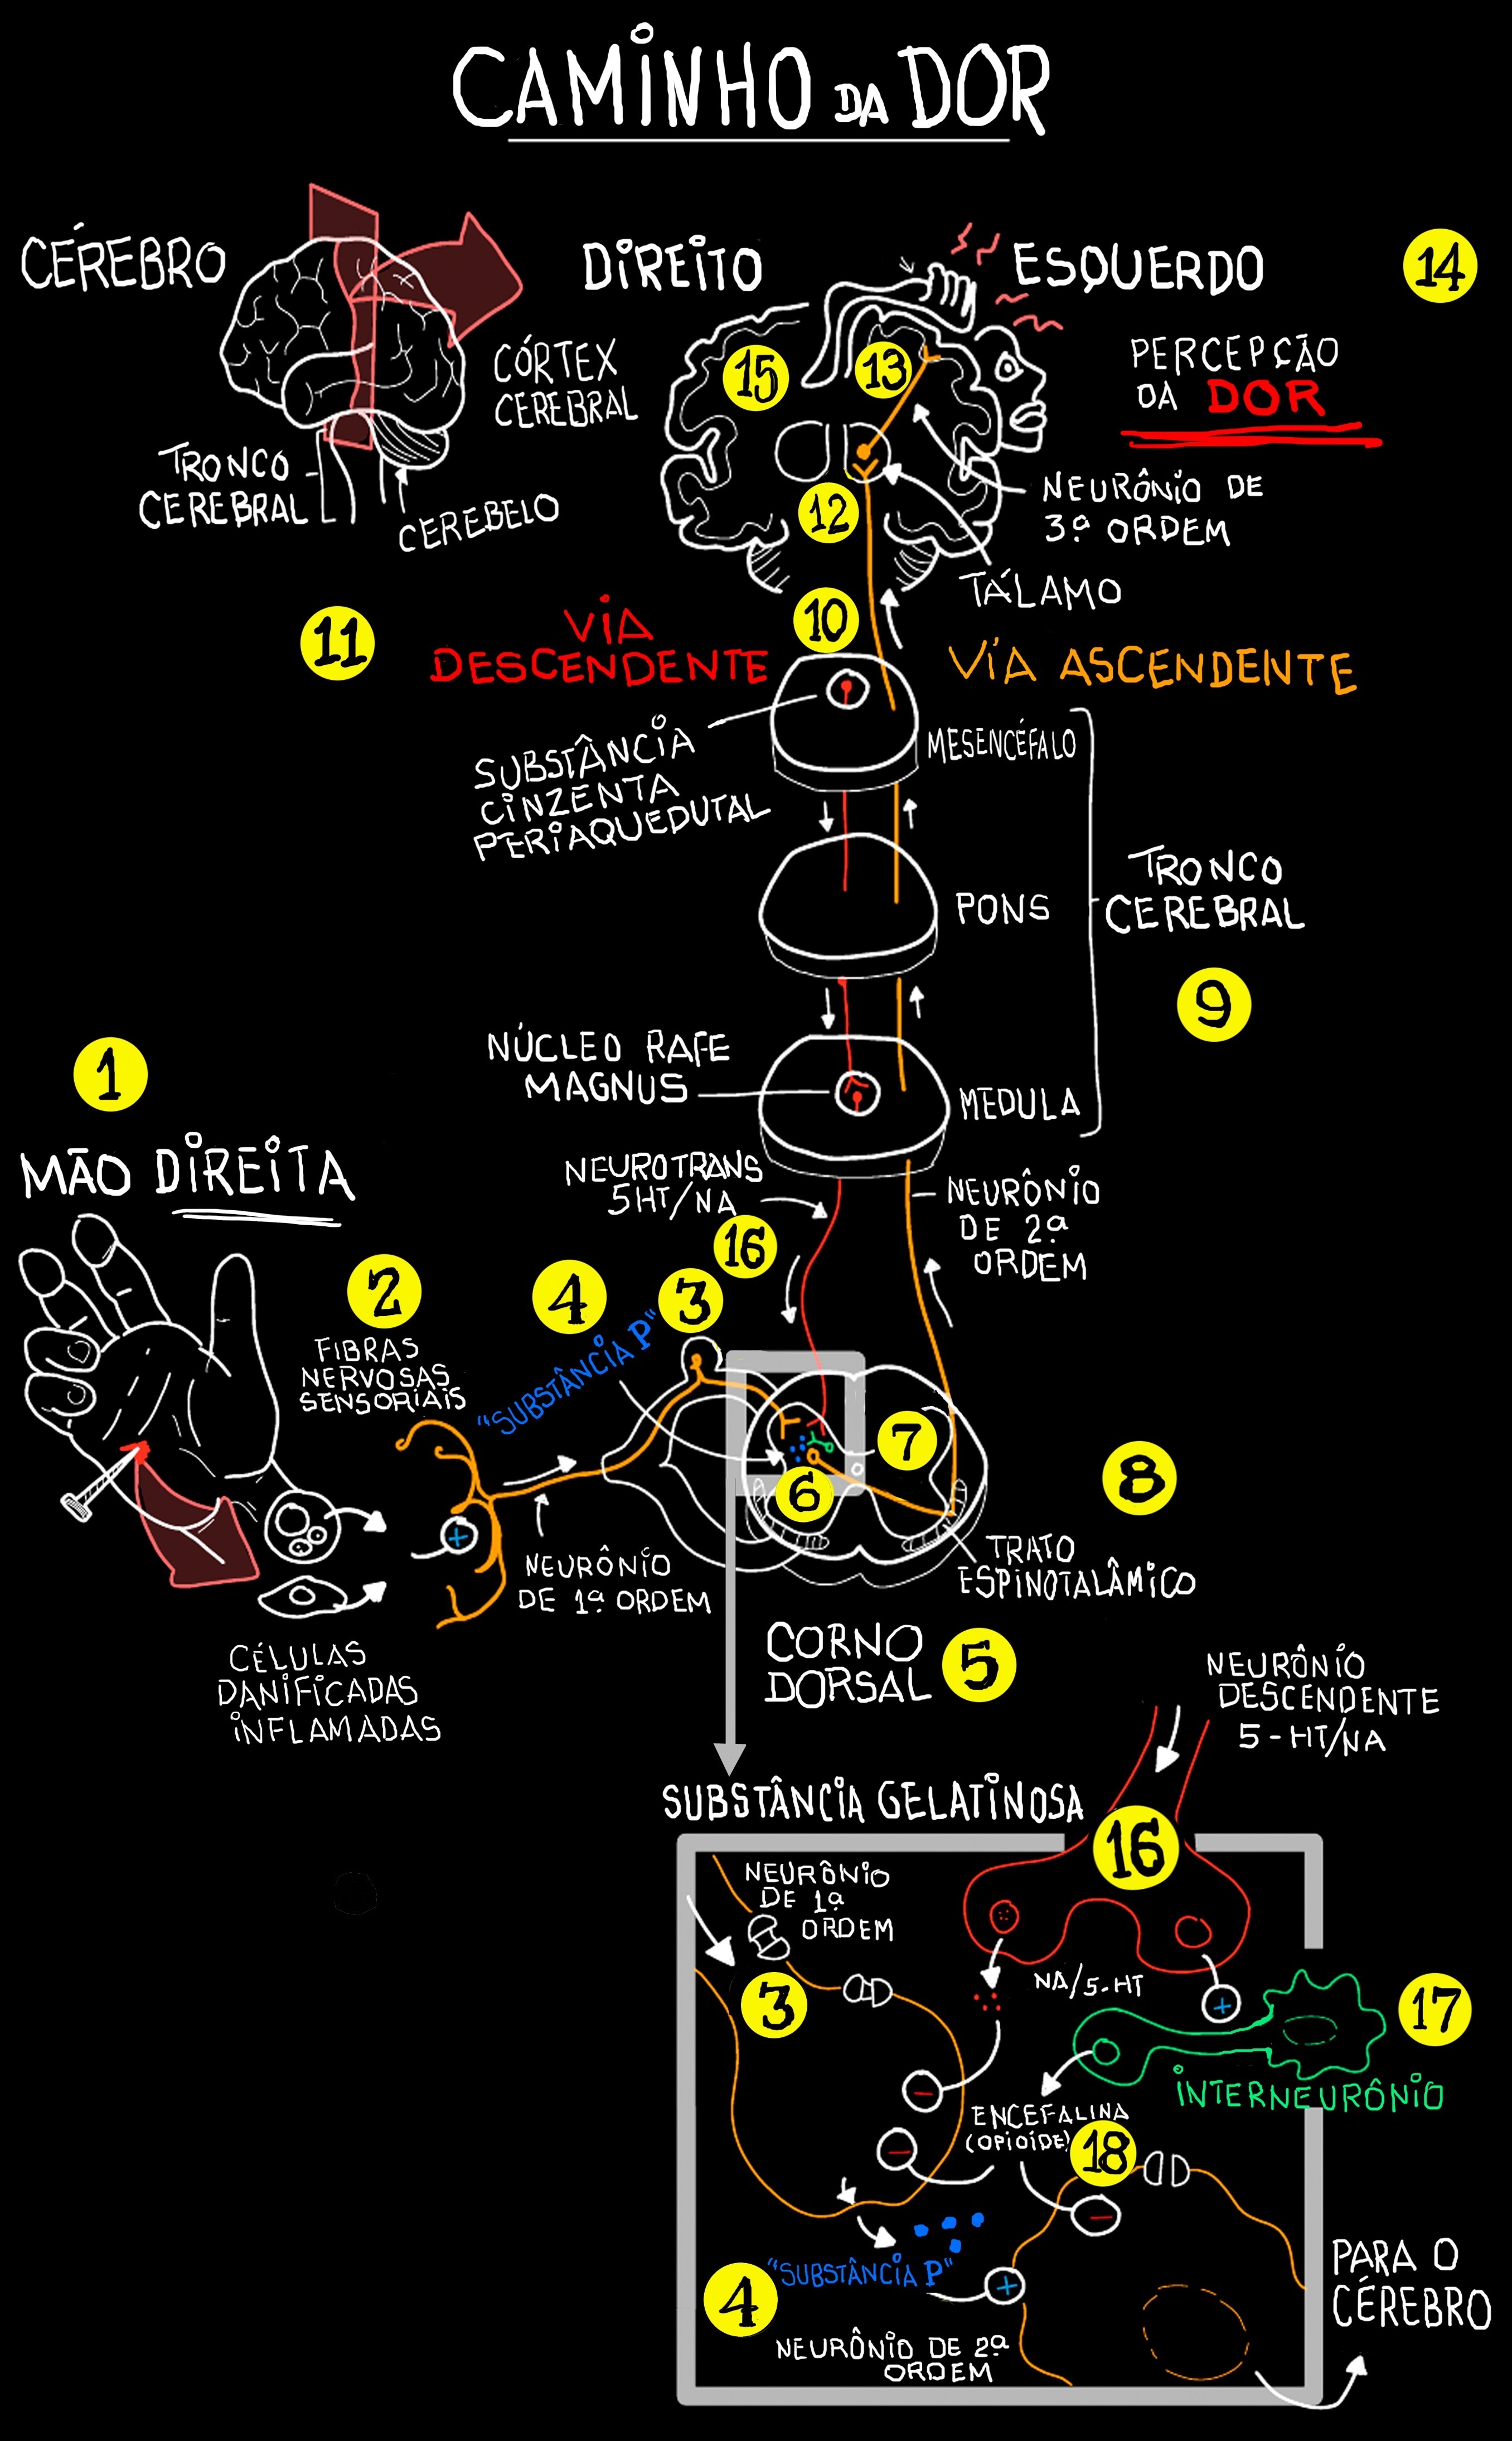 CAMINHO DA DOR
CÉREBRO
CÓRTEX
CEREBRAL
TRONCO
CEREBRAL
CEREBELO
DIREITO
ESQUERDO
14
PERCEPÇÃO
DA DOR
15
13
12
NEURÔNIO DE
3ª ORDEM
TÁLAMO
11
VIA
DESCENDENTE
10
VÍA ASCENDENTE
SUBSTÂNCIA
CINZENTA
PERIAQUEDUTAL
MESENCÉFALO
PONS
TRONCO
CEREBRAL
9
NÚCLEO RAFE
MAGNUS
MEDULA
1
MÃO DIREITA
NEUROTRANS
5HT/NA
16
NEURÔNIO
DE 2ª
ORDEM
2
FIBRAS
NERVOSAS
SENSORIAIS
4
"SUBSTÂNCIA P"
3
7
6
8
+
NEURÔNIO
DE 1ª ORDEM
TRATO
ESPINOTALÂMICO
CÉLULAS
DANIFICADAS
INFLAMADAS
CORNO
DORSAL
5
NEURÔNIO
DESCENDENTE
5-HT/NA
SUBSTÂNCIA GELATINOSA
16
NEURÔNIO
DE 1ª
ORDEM
3
NA/5-HT
+
17
INTERNEURÔNIO
-
ENCEFALINA
(OPIOÍDE)
18
-
-
"SUBSTÂNCIA P"
4
+
NEURÔNIO DE 2ª
ORDEM
PARA O
CÉREBRO